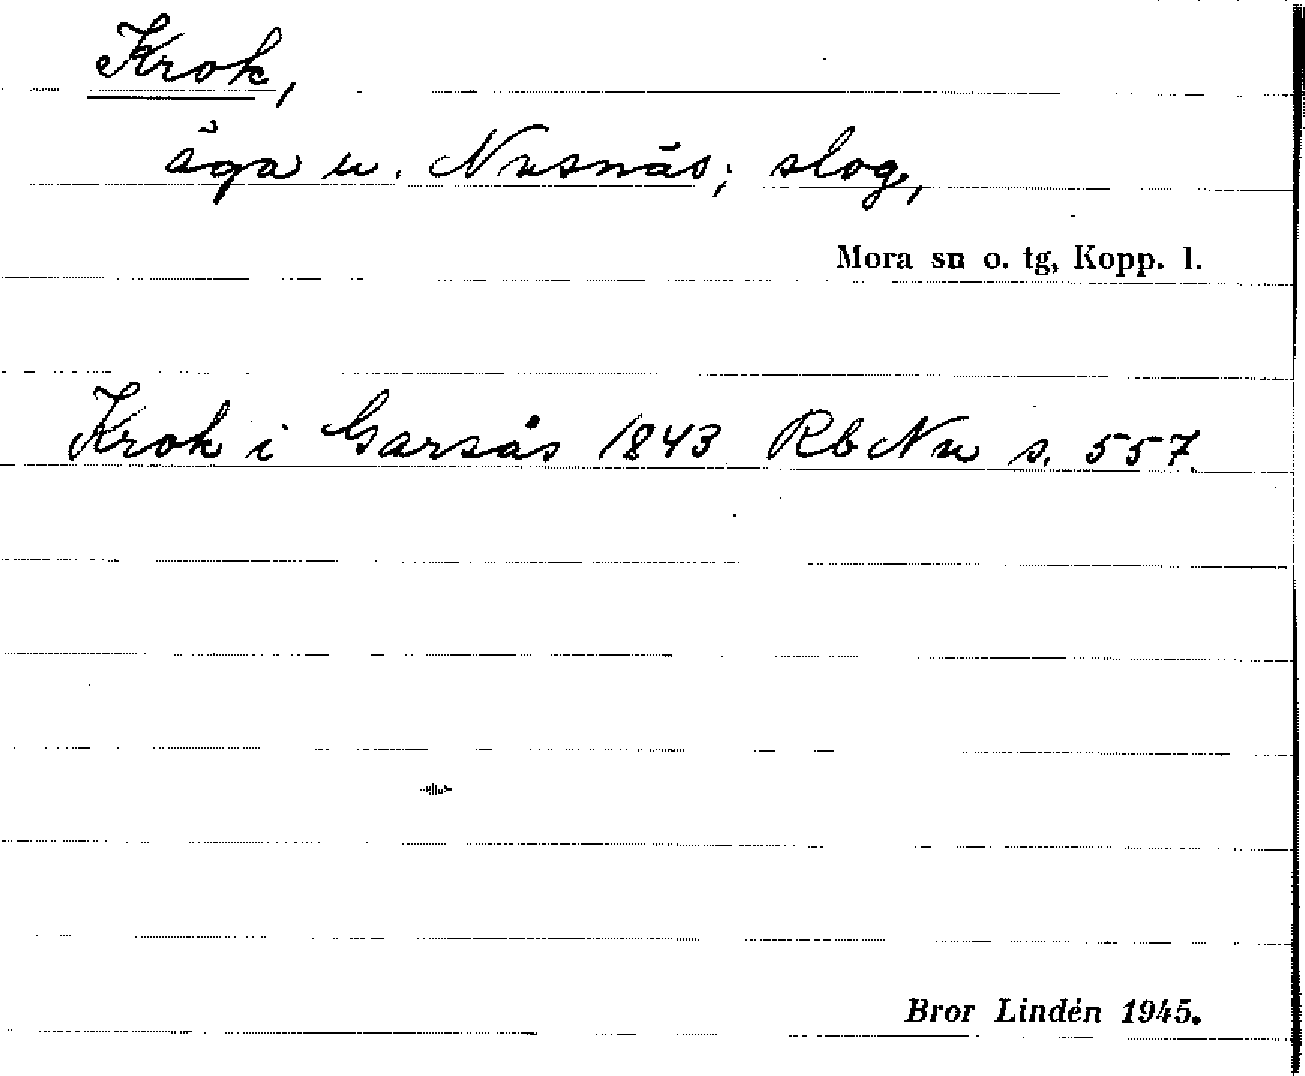 Krok,
äga u. Nusnäs; slog,
Mora sn o. tg, Kopp. l.
Krok i Garsås 1843 Rb Nu s. 557.
Bror Lindén 1945.